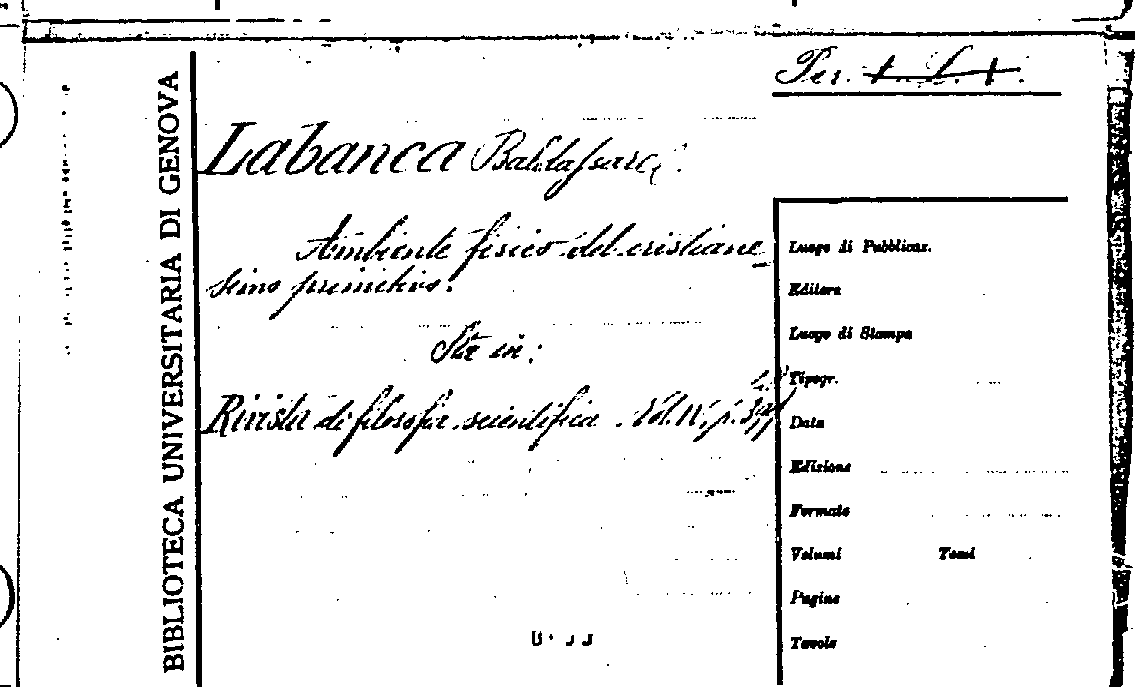 Per.
BIBLIOTECA UNIVERSITARIA DI GENOVA
Labanca Baldassare.
Ambiente fisico del cristiane_
simo primitivo.
Sta in:
Rivista di filosofia scientifica. Vol. IV, p.
Luogo di Pubblicaz.
Editore
Luogo di Stampa
Tipogr.
Data
Edizione
Formato
Volumi Tomi
Pagine
Tavole